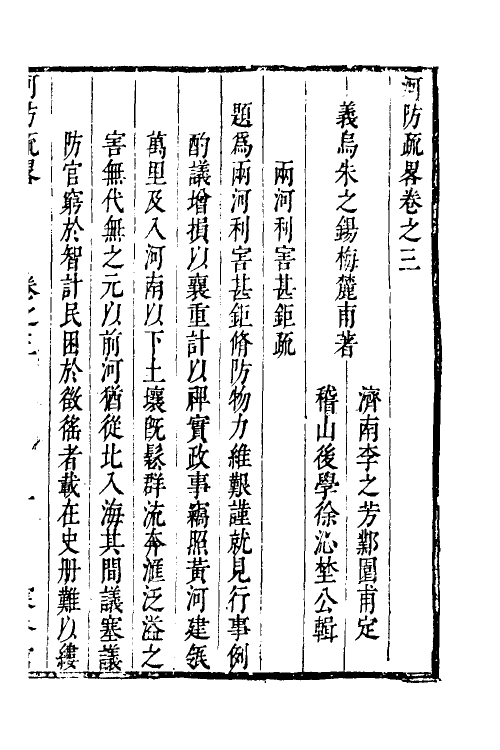 河防疏畧卷之三
義烏朱之錫梅麓甫著
濟南李之芳鄴園甫定
稽山後學徐沁埜公輯
兩河利害甚鉅疏
題爲兩河利害甚鉅脩防物力維艱謹就見行事例
酌議增損以襄重計以禆實政事竊照黃河建瓴
萬里及入河南以下土壤旣鬆群流奔滙泛溢之
害無代無之元以前河猶從北入海其間議塞議
防官窮於智計民困於徵徭者載在史册難以縷
河防疏畧
卷之三
一